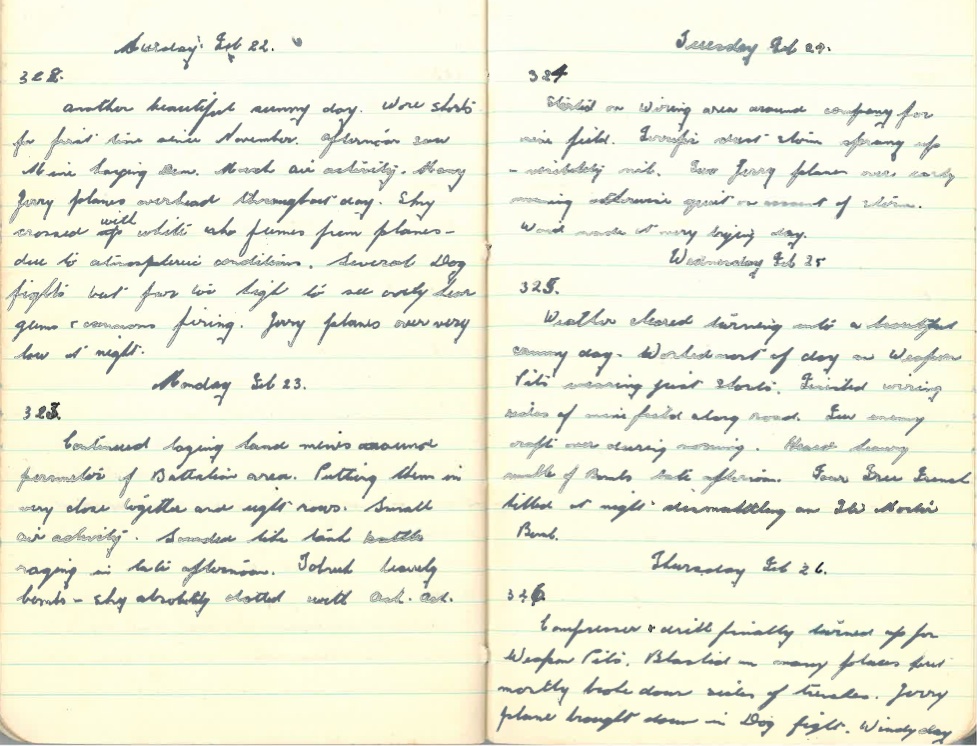 Sunday Feb 22.
322.
Another beautiful sunny day. Wore shorts
for first time since November. Afternoon saw
Mine laying Dem. Much air activity. Many
Jerry planes overhead throughout day. Sky
crossed with white plumes from planes -
due to atmospheric conditions. Several Dog
fights but far too high to see only hear
guns & cannons firing. Jerry planes over very
low at night.
Monday Feb 23.
323.
Continued laying land mines around
perimeter of Battalion area. Putting them in
very close together and eight rows. Small
air activity. Sounded like tank battle
raging in late afternoon. Tobruk heavily
bombed - sky absolutely dotted with Ack. Ack.
Tuesday Feb 24.
324
Started on Wiring area around company for
mine field. Terrific dust storm sprang up
- visibility nil. Few Jerry planes over early
morning otherwise quiet on account of storm.
Wind made it very trying day.
Wednesday Feb 25
325.
Weather cleared turning into a beautiful
sunny day. Worked most of day on Weapon
Pits wearing just shorts. Finished wiring
sides of mine field along road. Few enemy
craft over during morning. Heard heavy
rumble of Bombs late afternoon. Four Free French
killed at night dismantling an Iti Mortar
Bomb.
Thursday Feb 26.
326
Compressor & drill finally turned up for
Weapon Pits. Blasted in many places but
mostly broke down sides of trenches. Jerry
plane brought down in Dog fight. Windy day